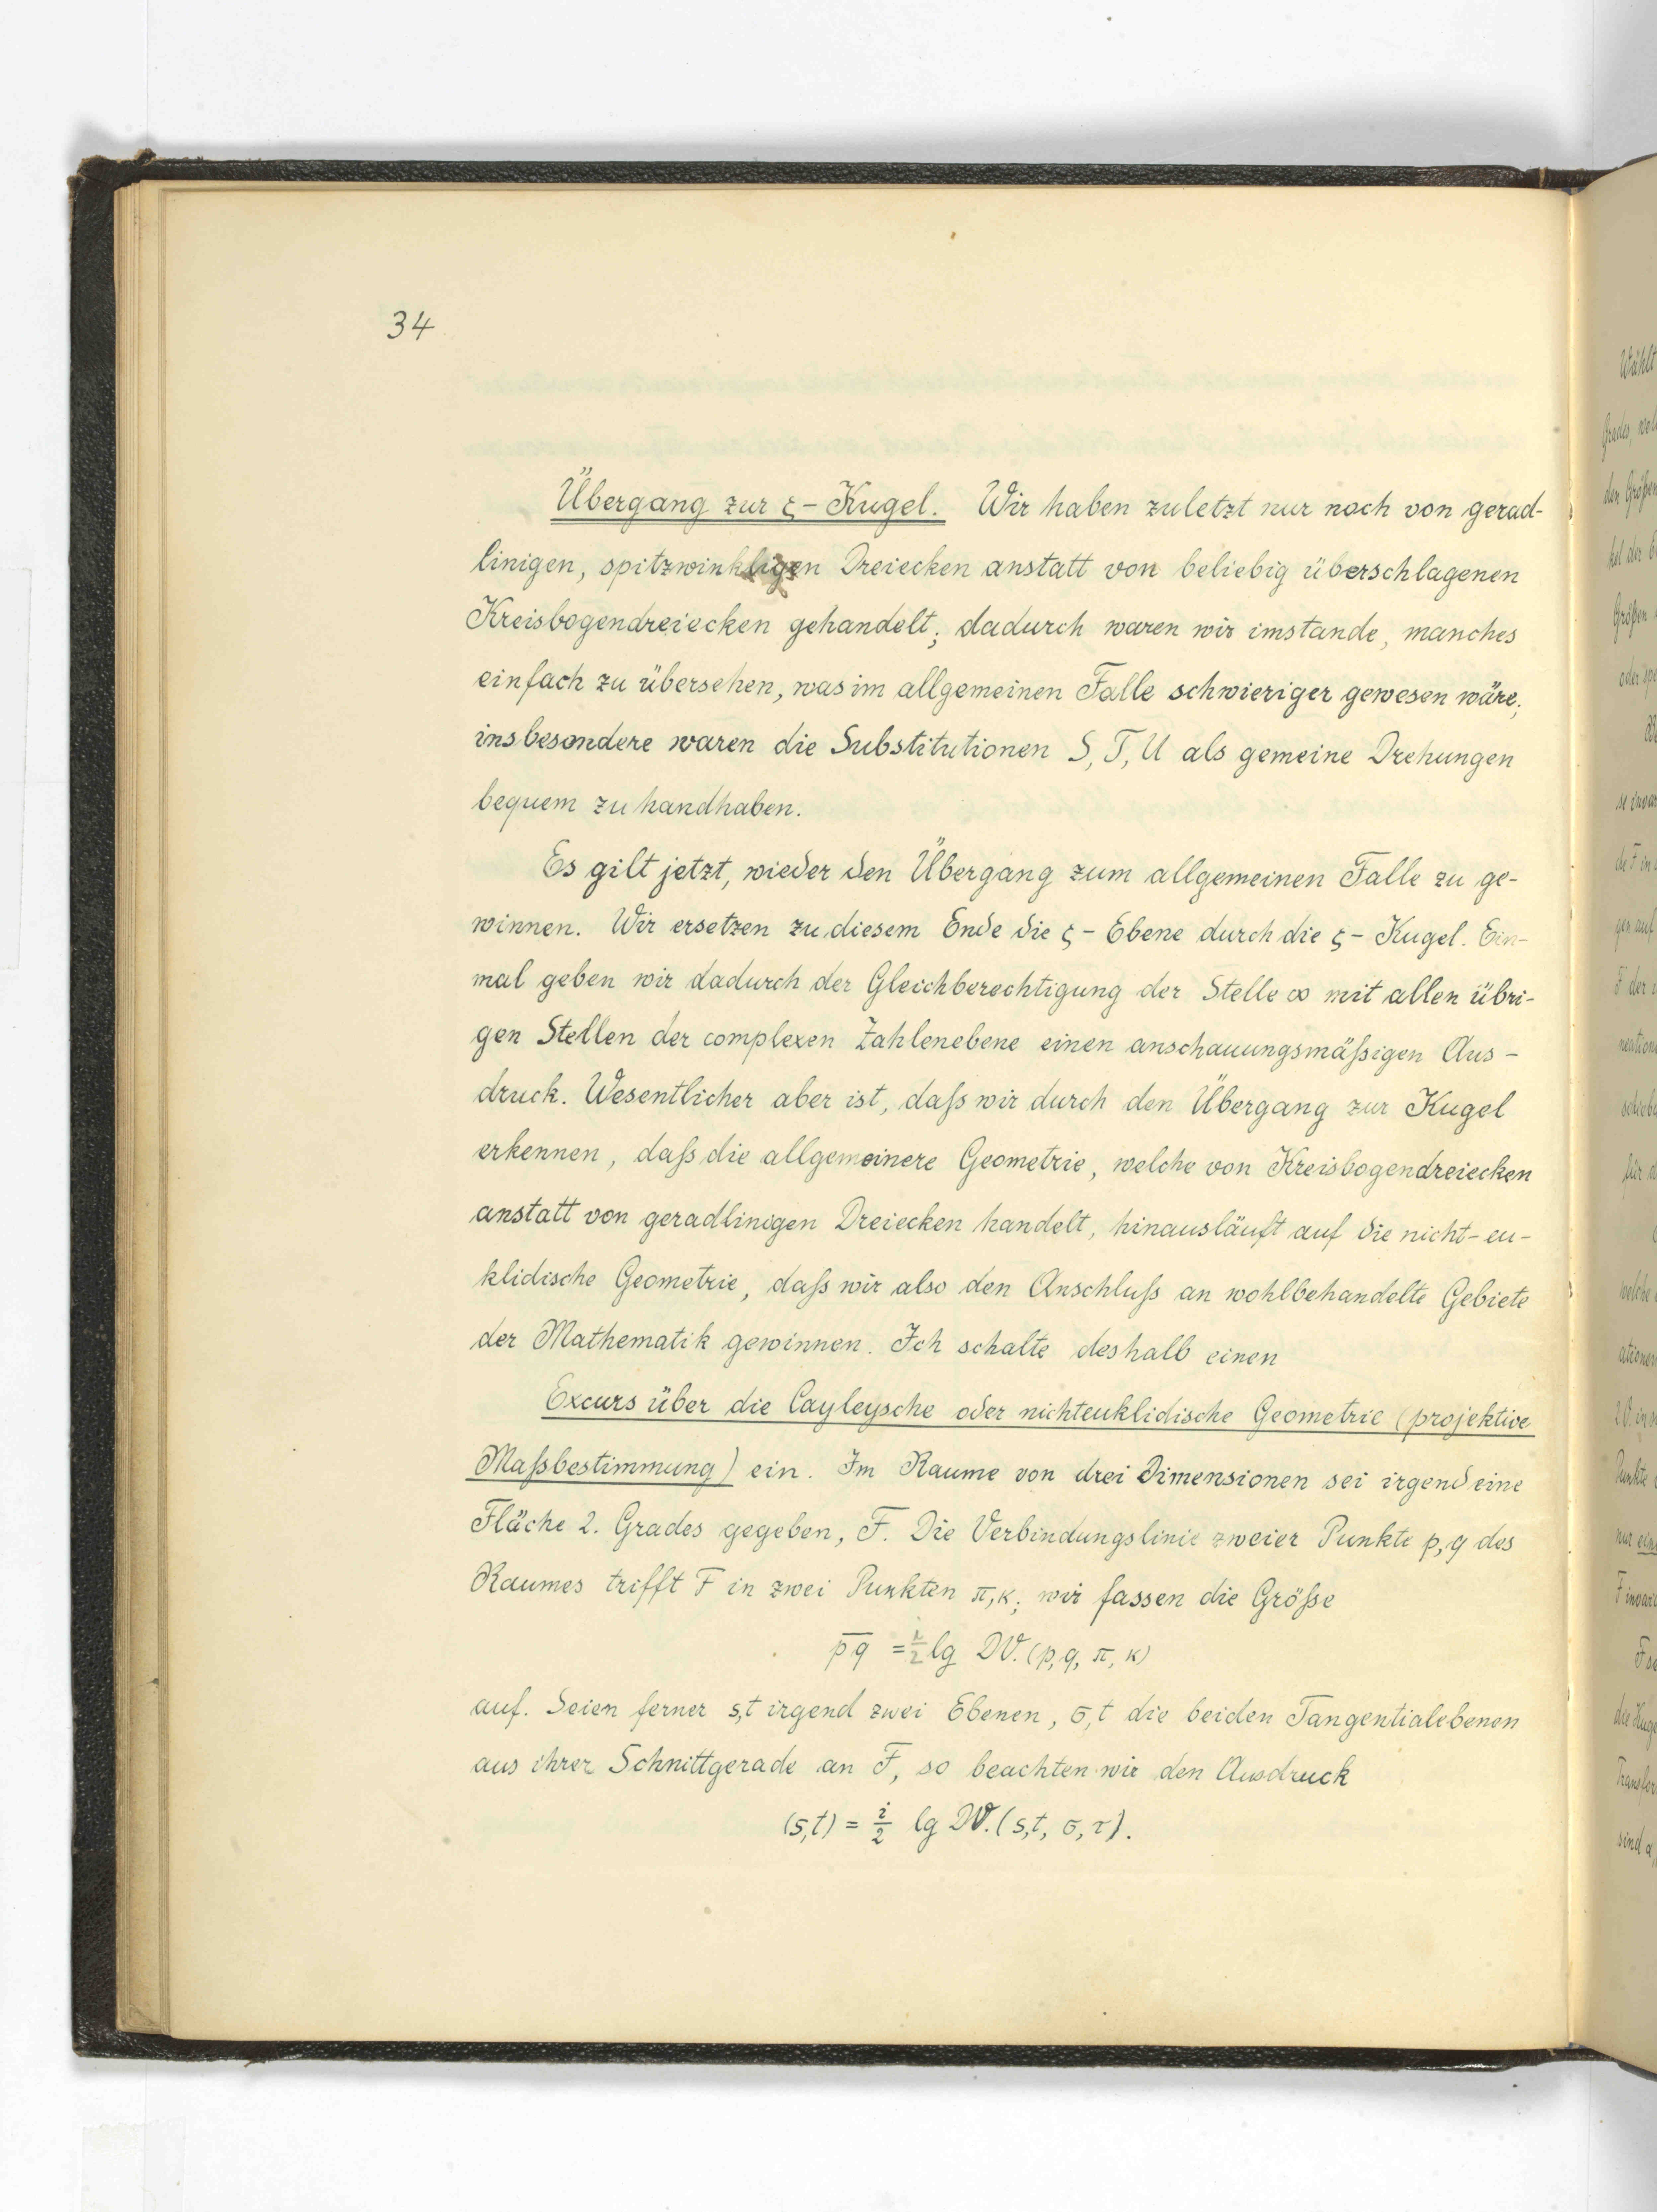 34
Übergang zur ζ- Kugel. Wir haben zuletzt nur noch von gerad-
linigen, spitzwinkligen Dreiecken anstatt von beliebig überschlagenen
Kreisbogendreiecken gehandelt; dadurch waren wir imstande, manches
einfach zu übersehen, was im allgemeinen Falle schwieriger gewesen wäre;
insbesondere waren die Substitutionen S, T, U als gemeine Drehungen
bequem zu handhaben.
Es gilt jetzt, wieder den Übergang zum allgemeinen Falle zu ge-
winnen. Wir ersetzen zu diesem Ende die ζ- Ebene durch die ζ- Kugel. Ein-
mal geben wir dadurch der Gleichberechtigung der Stelle ∞ mit allen übri-
gen Stellen der complexen Zahlenebene einen anschauungsmäßigen Aus-
druck. Wesentlicher aber ist, daß wir durch den Übergang zur Kugel
erkennen, daß die allgemeinere Geometrie, welche von Kreisbogendreiecken
anstatt von geradlinigen Dreiecken handelt, hinausläuft auf die nicht-eu-
klidische Geometrie, daß wir also den Anschluß an wohlbehandelte Gebiete
der Mathematik gewinnen. Ich schalte deshalb einen
Excurs über die Cayleysche oder nichteuklidische Geometrie (projektive
Maßbestimmung) ein. Im Raume von drei Dimensionen sei irgend eine
Fläche 2. Grades gegeben, F. Die Verbindungslinie zweier Punkte p, q des
Raumes trifft F in zwei Punkten π, κ; wir fassen die Größe
p̅q̅ = i/2 lg DV. (p, q, π, κ)
auf. Seien ferner s, t irgend zwei Ebenen, σ, t die beiden Tangentialebenen
aus ihrer Schnittgerade an F, so beachten wir den Ausdruck
(s, t) = i/2 lg DV. (s, t, σ, τ).
Wählt
Größen